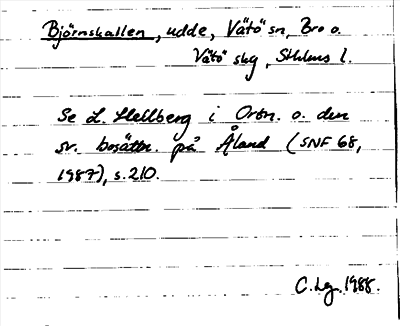 Björnskallen, udde, Vätö sn, Bro o.
Vätö skg, Sthlms l.
Se L. Hellberg i Ortn. o. den
sv. bosättn. på Åland (SNF 68,
1987), s. 210.
C. Lg. 1988.